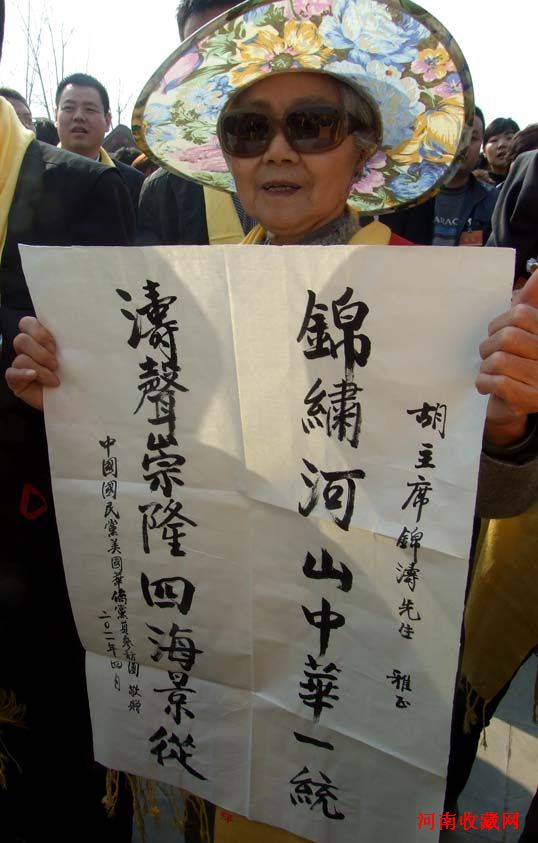 胡主席錦濤先生 雅正
錦繡河山中華一統
濤聲崇隆四海景從
中國國民黨美國華僑黨員參訪團 敬贈
二〇一一年四月
河南收藏网